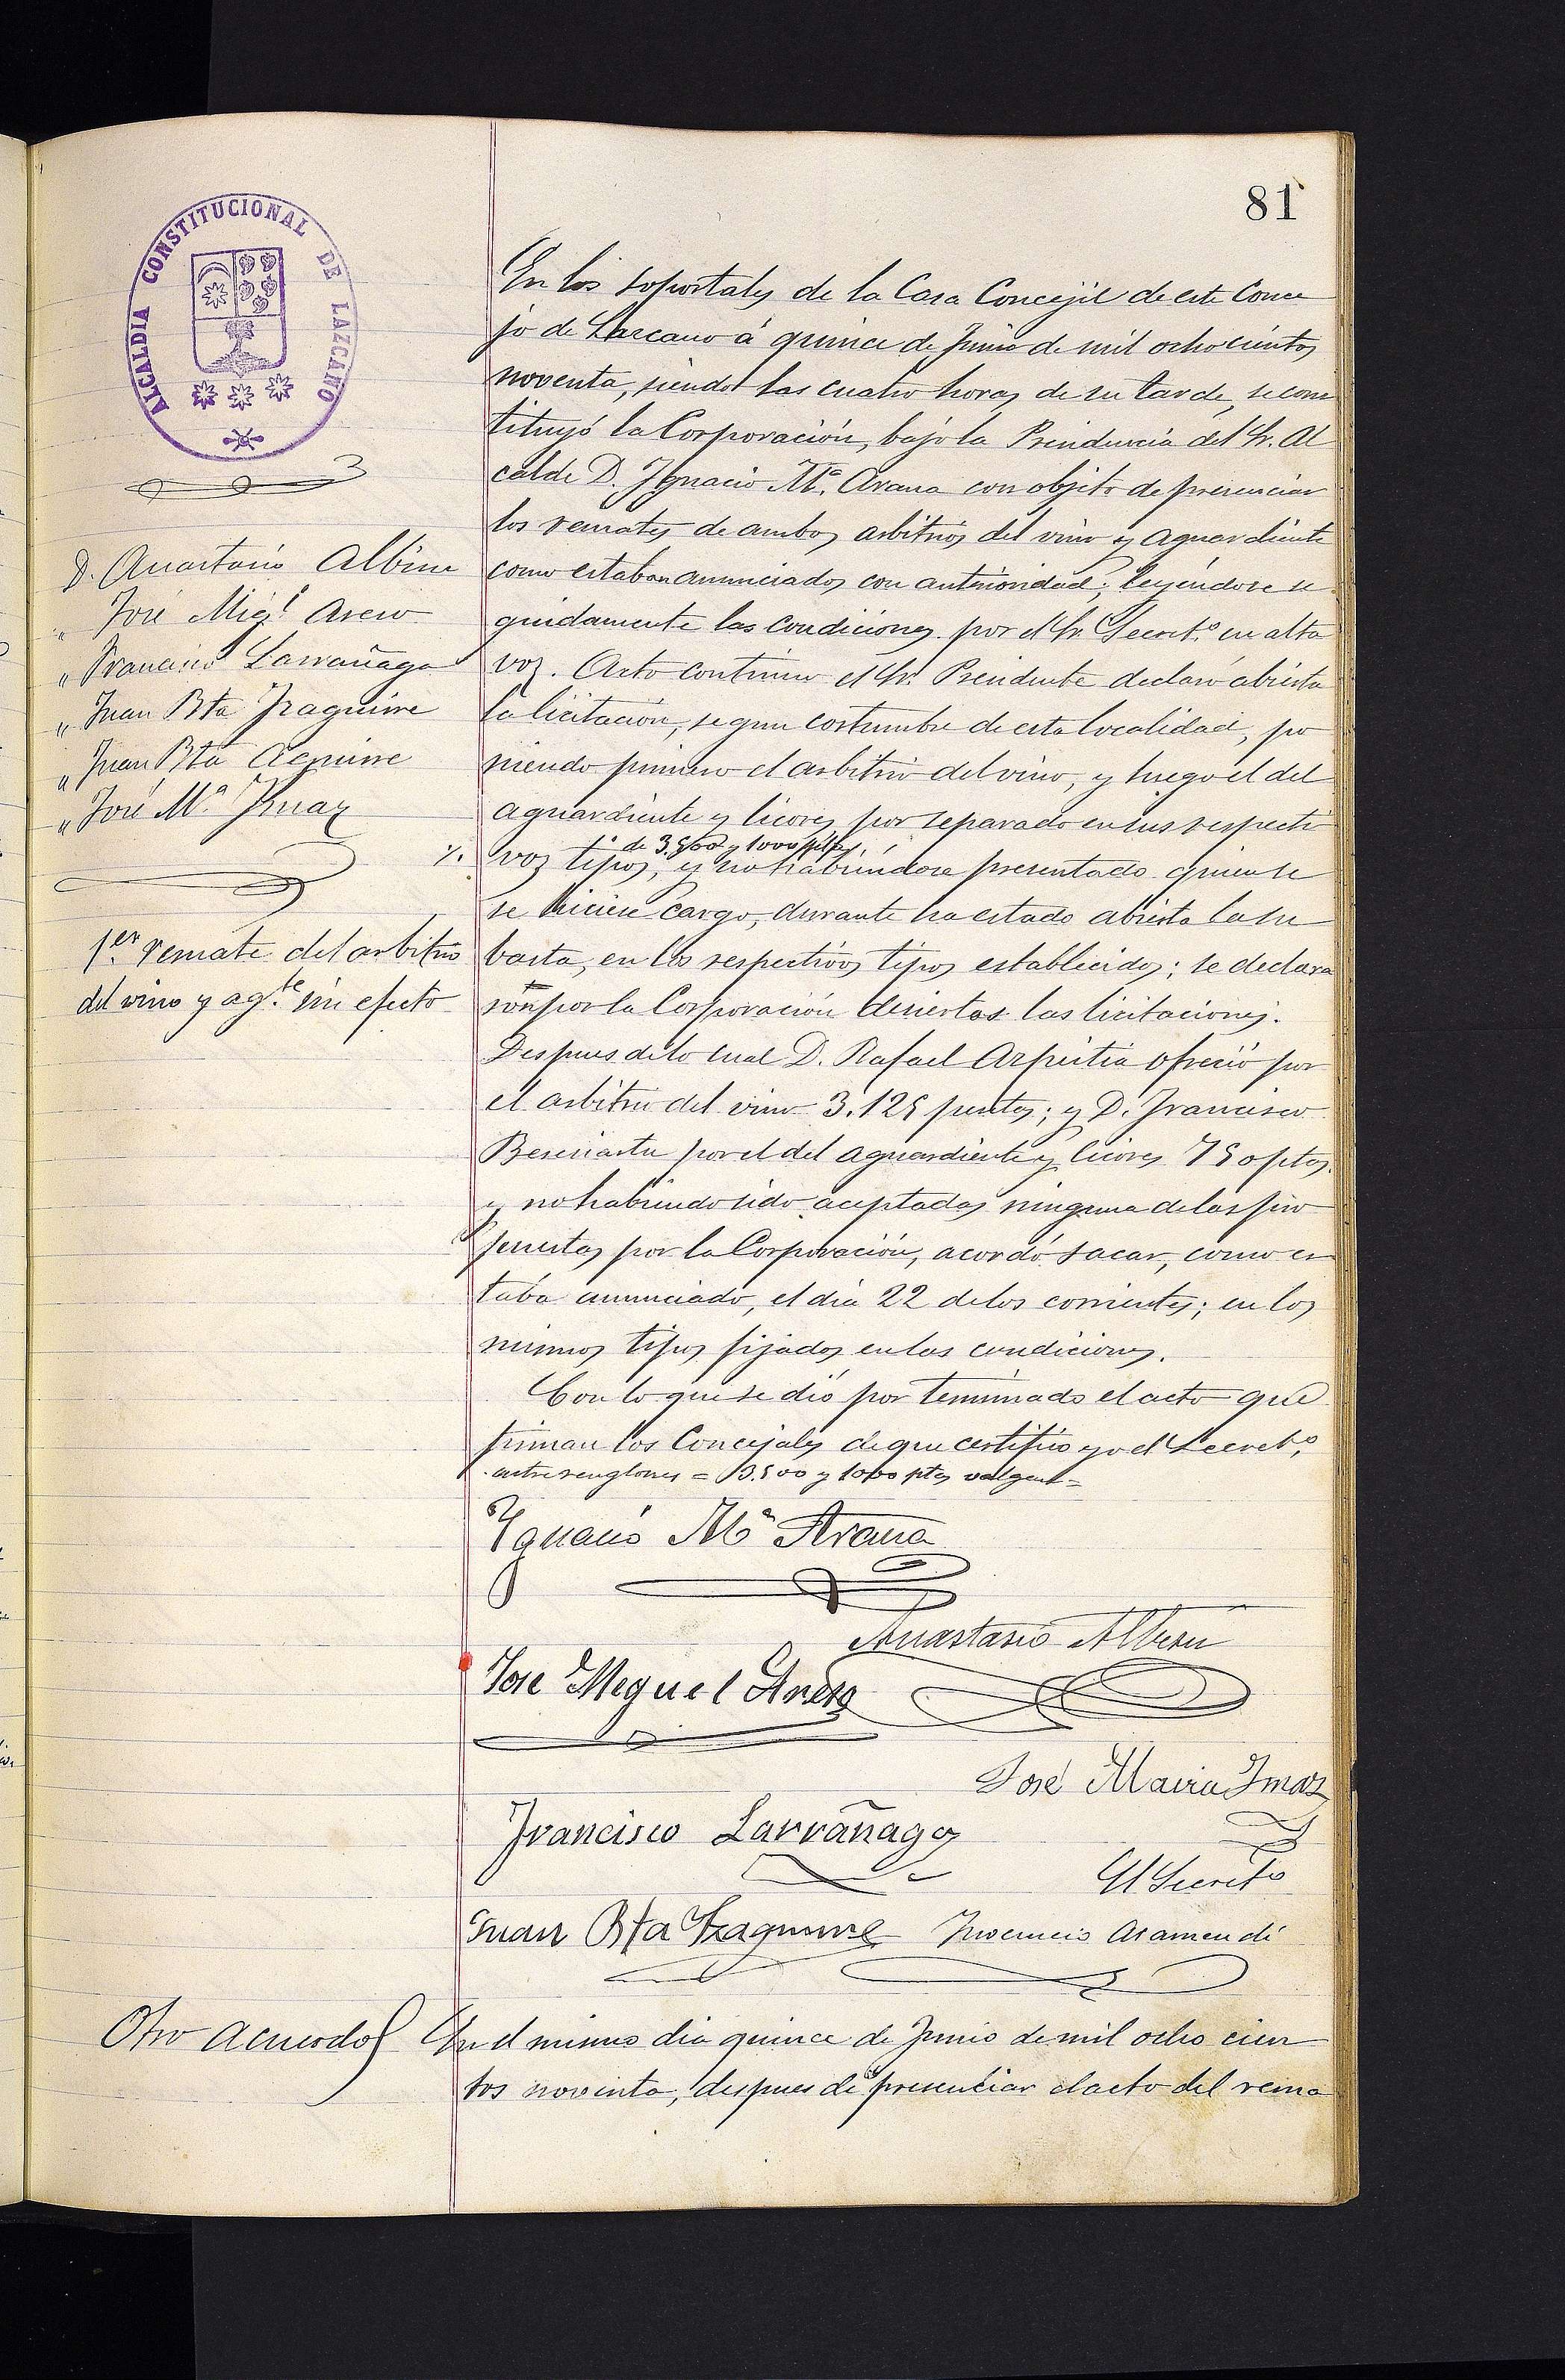 81
ALCALDIA CONSTITUCIONAL DE LAZCANO
D. Anastasio Albisu
" José Migl Areso
" Francisco Larrañaga
" Juan Bta Izaguirre
" Juan Bta Aguirre
" José Mª Imaz
1er remate del arbitrio
del vino y ag.te sin efecto
En los soportales de la Casa Concejil de este Conce
jo de Lazcano á quince de Junio de mil ochocientos
noventa, siendo las cuatro horas de su tarde, se cons
tituyó la Corporación, bajo la Presidencia del Sr. Al
calde D. Ignacio Mª. Arana con objeto de presenciar
los remates de ambos arbitrios del vino y aguardiente
como estaban anunciados con anterioridad; leyéndose se
guidamente las condiciones por el Sr. Secret.º en alta
voz. Acto continuo el Sr. Presidente declaró abierta
la licitación, segun costumbre de esta localidad, po
niendo primero el arbitrio del vino, y luego el del
aguardiente y licores por separado en sus respecti
de 3.500 y 1000 ptas,
vos tipos, y no habiéndose presentado quien se
se hiciese cargo, durante ha estado abierta la su
basta, en los respectivos tipos establecidos; se declara
ron por la Corporación desiertas las licitaciones.
Despues de lo cual D. Rafael Azpeitia ofreció por
el arbitrio del vino 3.125 pesetas; y D. Francisco
Beseriartu por el del aguardiente y licores 750 ptas.
y no habiendo sido aceptadas ninguna de las pro
puestas por la Corporación, acordó sacar, como es
taba anunciado, el dia 22 de los corrientes; en los
mismos tipos fijados en las condiciones.
Con lo que se dió por terminado el acto que
firman los Concejales de que certifico yo el Secret.º
entre renglones = 3.500 y 1000 ptas valgan =
Ygnacio Mª Arana
Anastasio Albisu
Jose Meguel Areso
José Maria Imaz
Francisco Larrañaga
El Secretº
Juan Bta Izaguirre Inocencio Asamendi
Otro acuerdo
En el mismo dia quince de Junio de mil ocho cien
tos noventa, despues de presenciar el acto del rema